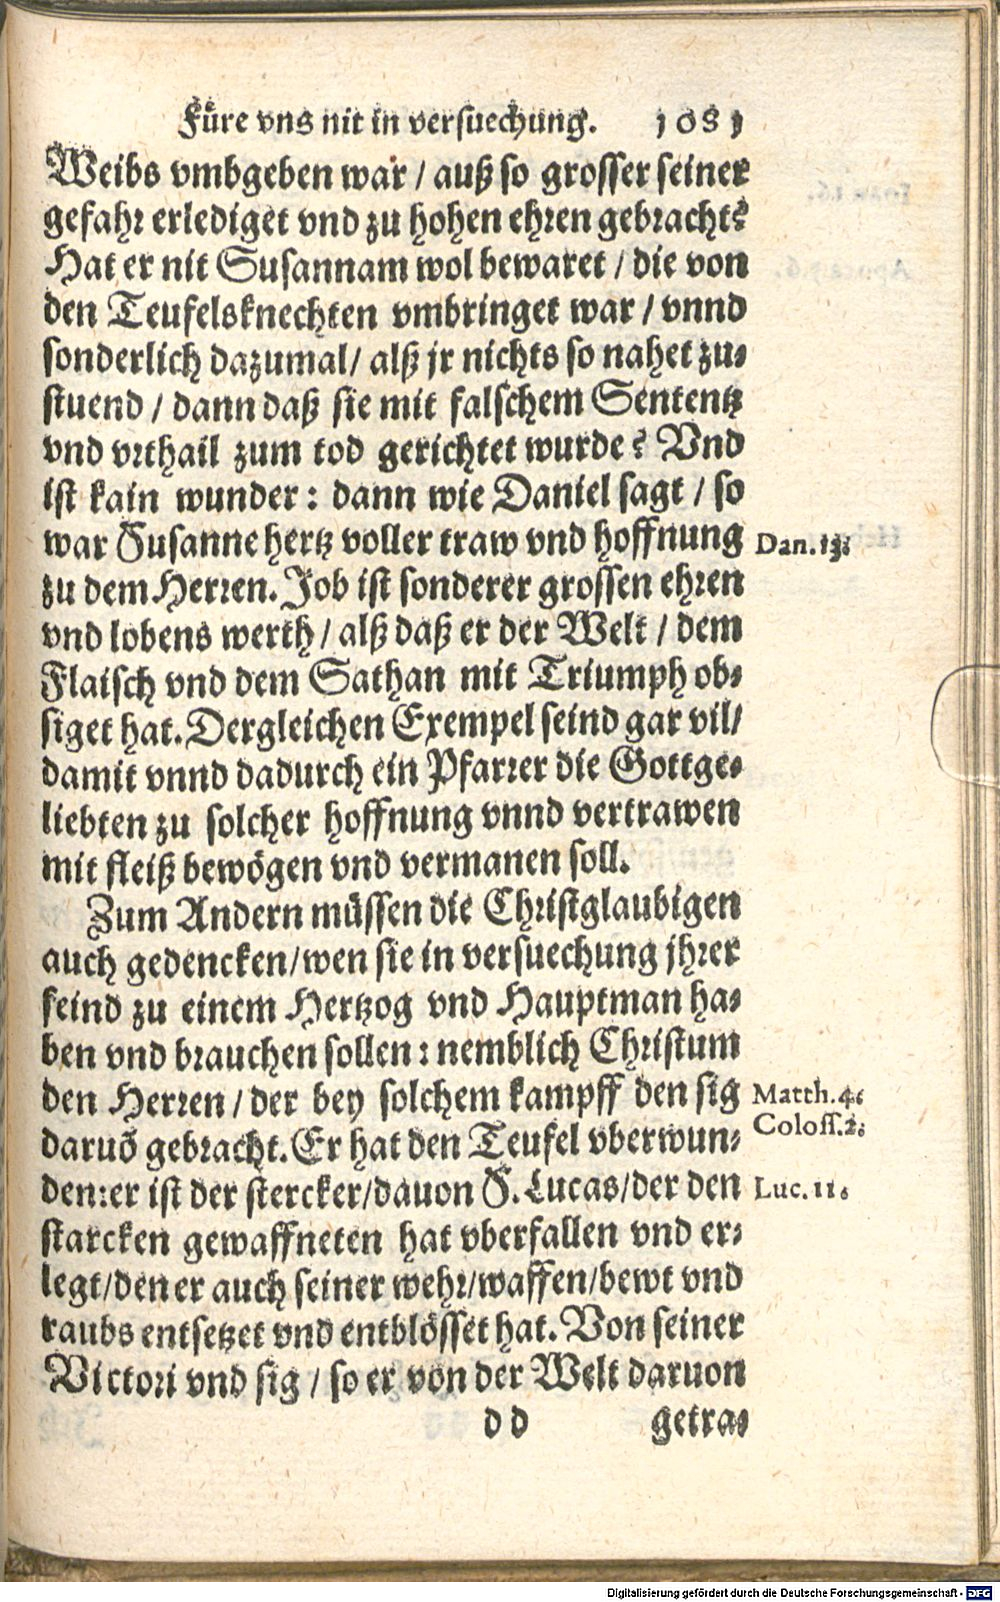 Füre vns nit in versuechung. 1081
Weibs vmbgeben war / auß so grosser seiner
gefahr erlediget vnd zu hohen ehren gebracht?
Hat er nit Susannam wol bewaret / die von
den Teufelsknechten vmbringet war / vnnd
sonderlich dazumal/ alß jr nichts so nahet zu-
stuend / dann daß sie mit falschem Sententz
vnd vrthail zum tod gerichtet wurde? Vnd
ist kain wunder: dann wie Daniel sagt / so
war Susanne hertz voller traw vnd hoffnung Dan. 13.
zu dem Herren. Job ist sonderer grossen ehren
vnd lobens werth / alß daß er der Welt / dem
Flaisch vnd dem Sathan mit Triumph ob-
siget hat. Dergleichen Exempel seind gar vil/
damit vnnd dadurch ein Pfarrer die Gottge-
liebten zu solcher hoffnung vnnd vertrawen
mit fleiß bewögen vnd vermanen soll.
Zum Andern müssen die Christglaubigen
auch gedencken/wen sie in versuechung jhrer
feind zu einem Hertzog vnd Hauptman ha-
ben vnd brauchen sollen: nemblich Christum
den Herren / der bey solchem kampff den sig Matth. 4.
daruõ gebracht. Er hat den Teufel vberwun- Coloss. 2.
den:er ist der stercker/dauon S. Lucas/der den Luc. 11.
starcken gewaffneten hat vberfallen vnd er-
legt/den er auch seiner wehr/waffen/bewt vnd
raubs entsetzet vnd entblösset hat. Von seiner
Victori vnd sig / so er von der Welt daruon
dd getra-
Digitalisierung gefördert durch die Deutsche Forschungsgemeinschaft - DFG